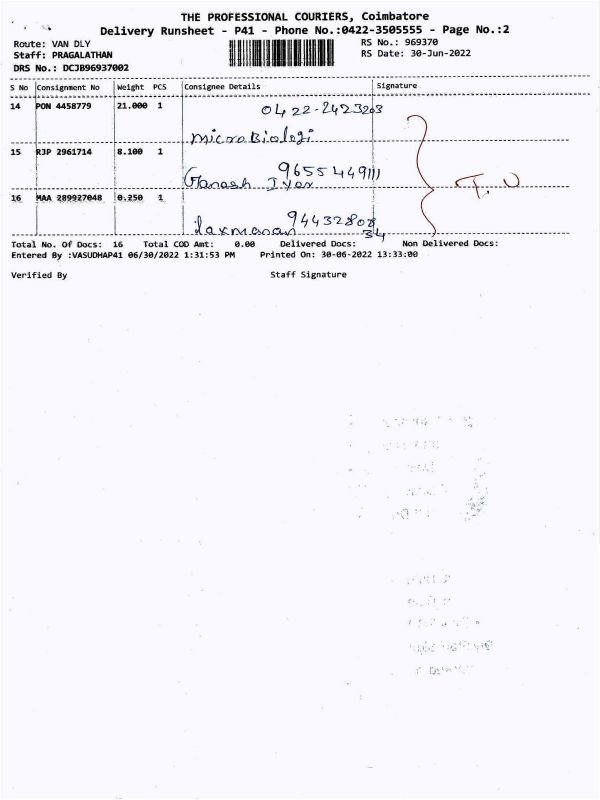 THE PROFESSIONAL COURIERS, Coimbatore
Delivery Runsheet - P41 - Phone No.:0422-3505555 - Page No.:2
Route: VAN DLY RS No.: 969370
Staff: PRAGALATHAN RS Date: 30-Jun-2022
DRS No.: DCJB96937002
S No Consignment No Weight PCS Consignee Details Signature
14 PON 4458779 21.000 1 0422-2423203
microBiologi
15 RJP 2961714 8.100 1 9655449111
Ganash Iyar
T. U
16 MAA 289927048 0.250 1 94432808
34
Laxmanan
Total No. Of Docs: 16 Total COD Amt: 0.00 Delivered Docs: Non Delivered Docs:
Entered By :VASUDHAP41 06/30/2022 1:31:53 PM Printed On: 30-06-2022 13:33:00
Verified By Staff Signature